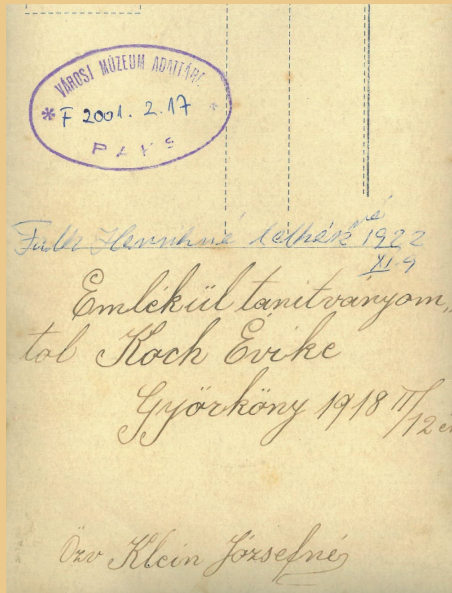 VÁROSI MÚZEUM ADATTÁRA
* F 2001. 2. 17 *
PAKS
1922
XI.9
Emlékül tanitványom„
tol Koch Évike
Györköny 1918 II/12 én
Özv Klein Józsefné